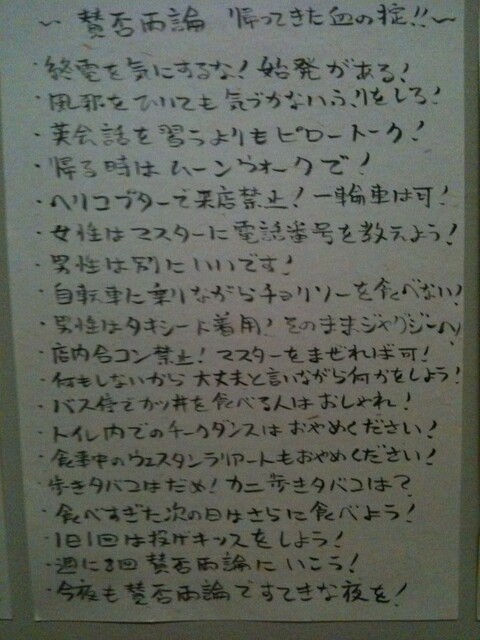 〜 賛否両論 帰ってきた血の掟!!〜
・終電を気にするな! 始発がある!
・風邪をひいても気づかないふりをしろ!
・英会話を習うよりもピロートーク!
・帰る時はムーンウォークで!
・ヘリコプターで来店禁止! 一輪車は可!
・女性はマスターに電話番号を教えよう!
・男性は別にいいです!
・自転車に乗りながらチョリソーを食べない!
・男性はタキシード着用! そのままジャグジーへ!
・店内合コン禁止! マスターをまぜれば可!
・何もしないから大丈夫と言いながら何かをしよう!
・バス停でカツ丼を食べる人はおしゃれ!
・トイレ内でのチークダンスはおやめください!
・食事中のウエスタンラリアートもおやめください!
・歩きタバコはだめ! カニ歩きタバコは?
・食べすぎた次の日はさらに食べよう!
・1日1回は投げキッスをしよう!
・週に8回賛否両論にいこう!
・今夜も賛否両論ですてきな夜を!